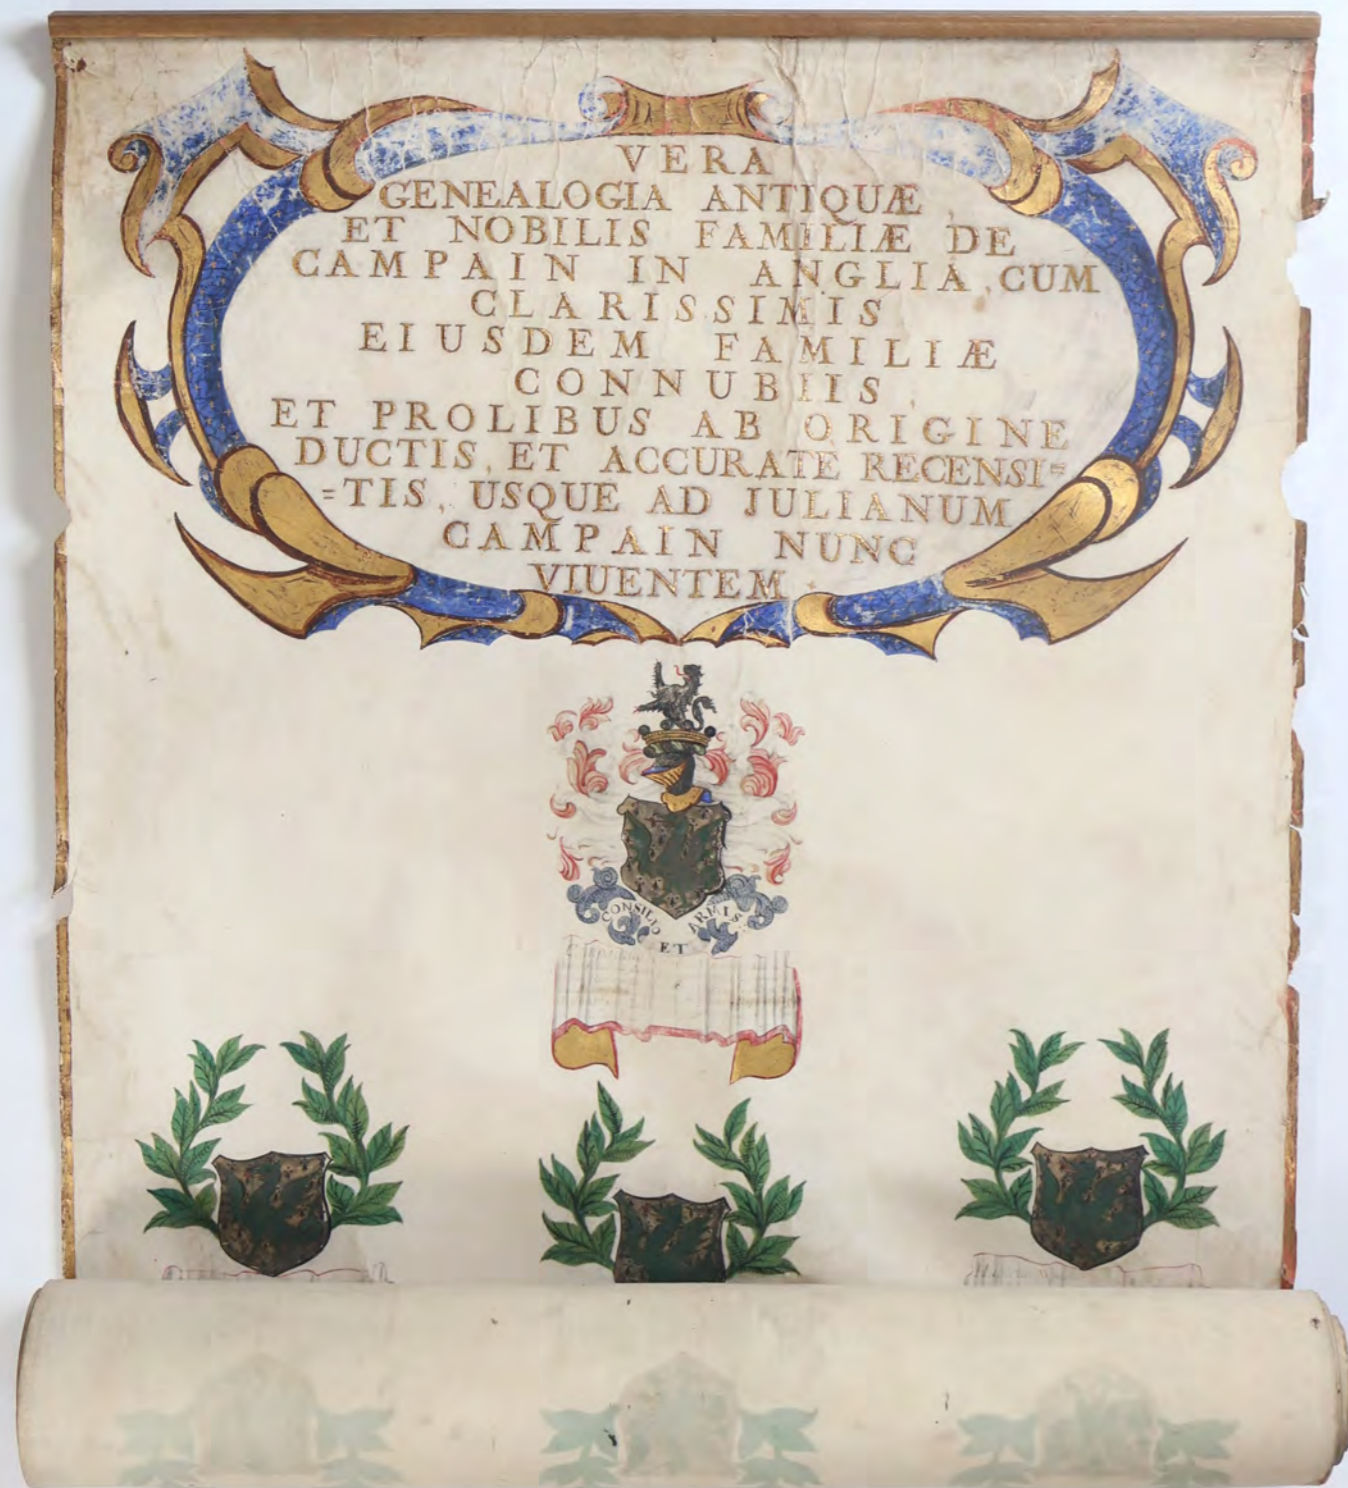 VERA
GENEALOGIA ANTIQUÆ,
ET NOBILIS FAMILIÆ DE
CAMPAIN IN ANGLIA, CUM
CLARISSIMIS
EIUSDEM FAMILIÆ
CONNUBIIS,
ET PROLIBUS AB ORIGINE
DUCTIS, ET ACCURATE RECENSI=
=TIS, USQUE AD JULIANUM
CAMPAIN NUNC
VIUENTEM.
CONSILIO ET ARMIS